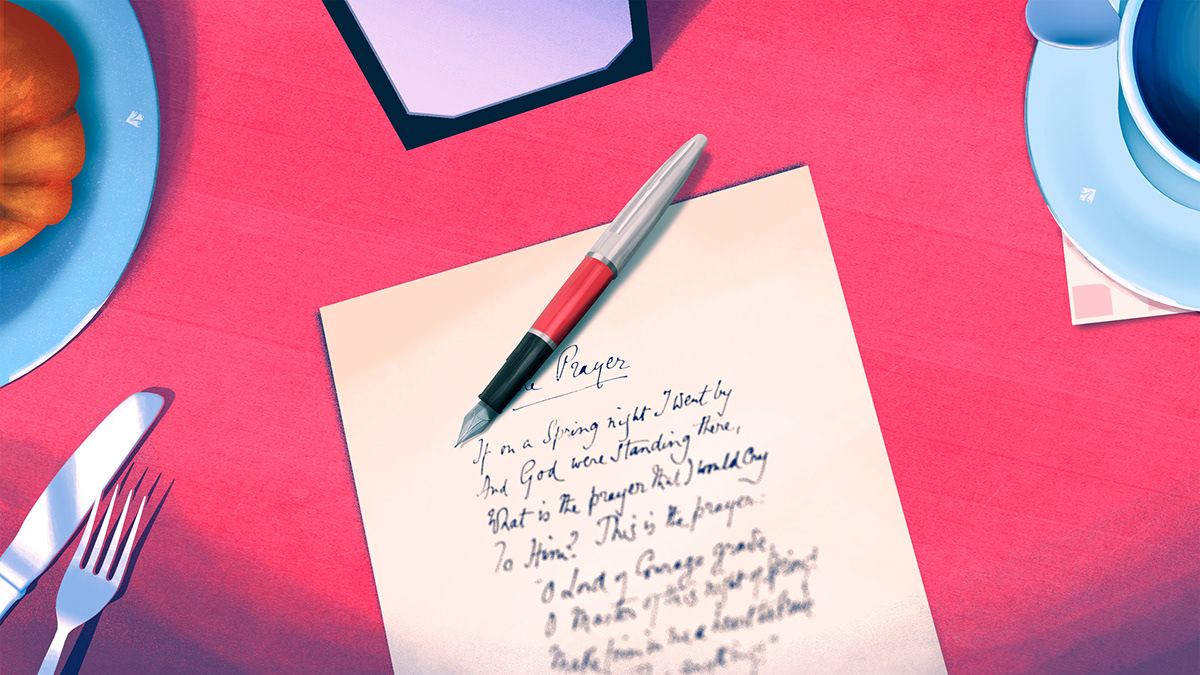 Prayer
If on a Spring night I went by
And God were standing there,
What is the prayer that I would cry
To Him? This is the prayer:
O Lord of Courage grave,
O Master of this night of Spring
Make firm in me a heart